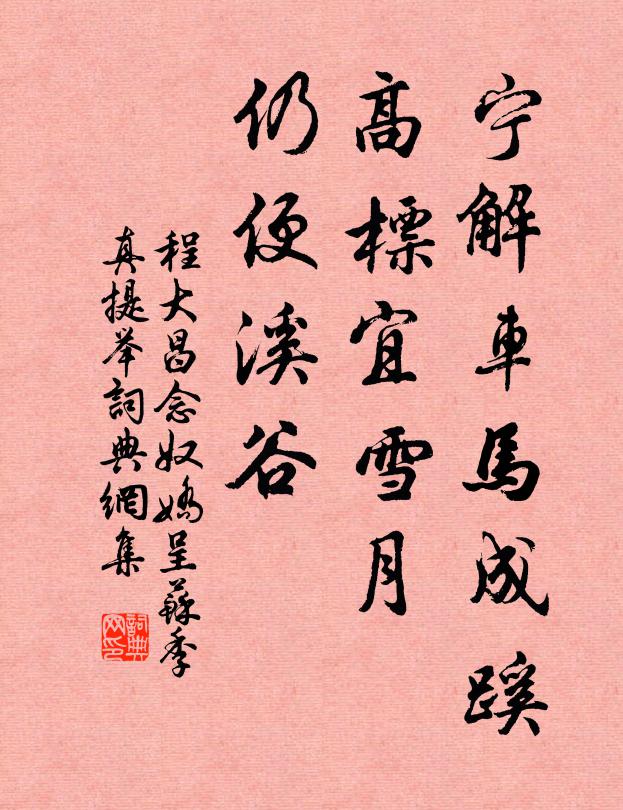 宁解車馬成蹊
高標宜雪月
仍便溪谷
程大昌念奴嬌呈蘇季
真提举詞典網集
詞典网印